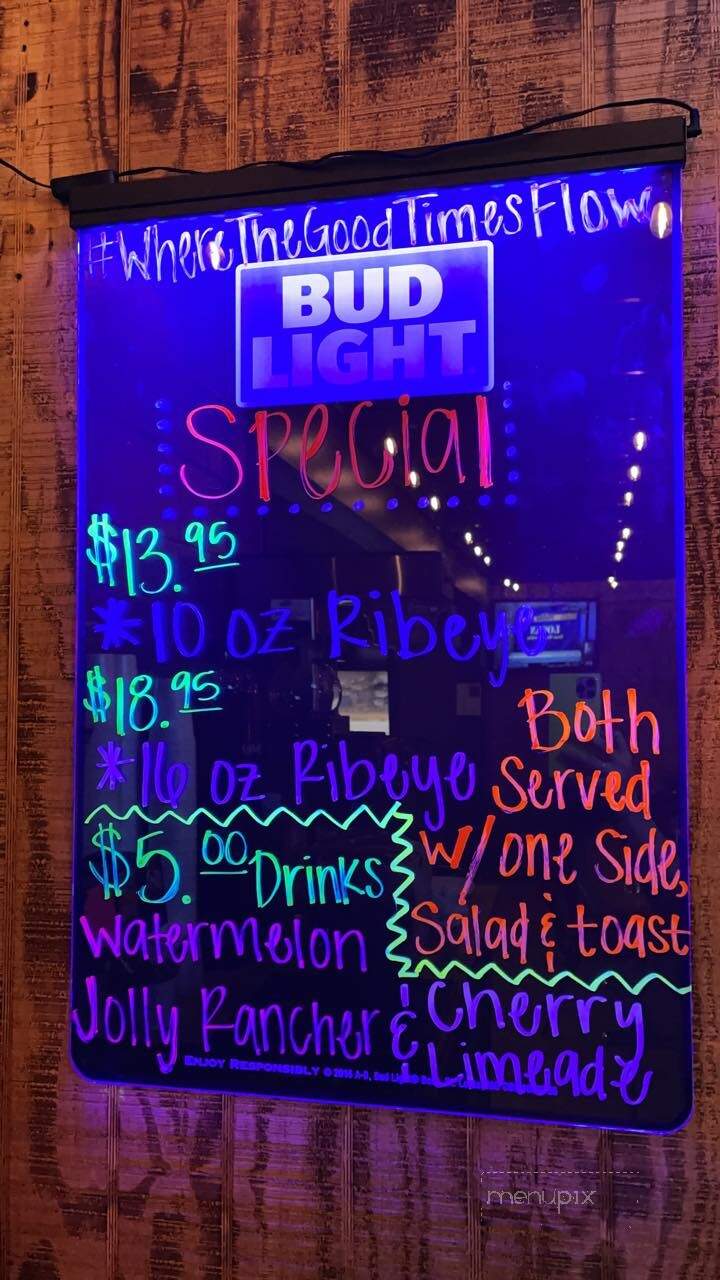 #WhereTheGoodTimesFlow
BUD
LIGHT
Special
$13.95
*10 oz Ribeye
$18.95
*16 oz Ribeye
Both
Served
w/one Side,
Salad & toast
$5.00 Drinks
Watermelon
Jolly Rancher &
Cherry
Limeade
ENJOY RESPONSIBLY
menupix